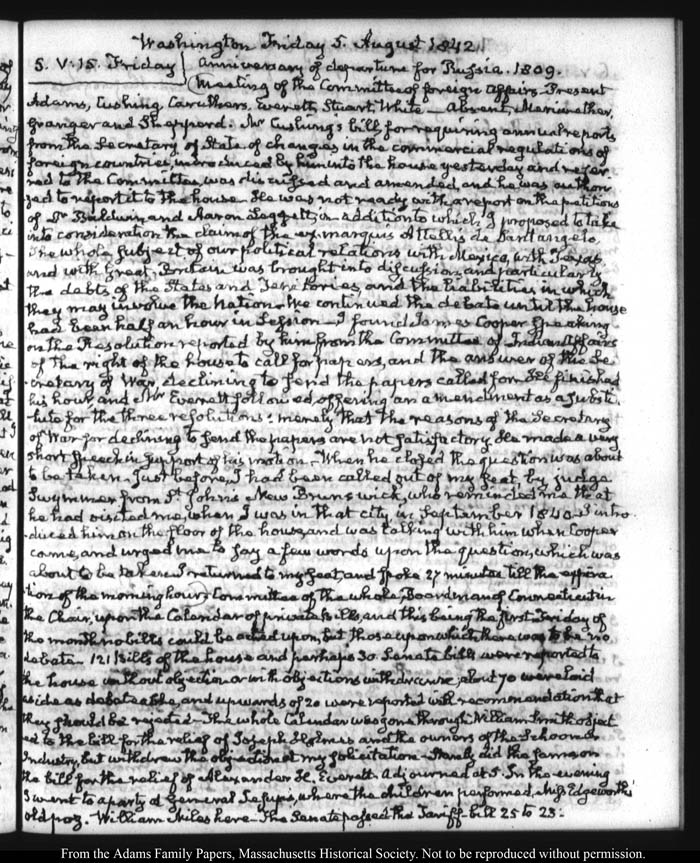 Washington Friday 5. August 1842.
5. V:15. Friday Anniversary of departure for Russia. 1809.
Meeting of the Committee of foreign Affairs. Present
Adams, Cushing, Caruthers, Everett, Stuart, White — Absent, Meriwether,
Granger and Shepperd. Mr Cushing's bill for requiring annual reports
from the Secretary of State of changes in the commercial regulations of
foreign countries, introduced by him into the house yesterday and refer
red to the Committee, was discussed and amended, and he was author
ized to report it to the house. He was not ready with a report on the petitions
of Dr Baldwin and Aaron Leggett, in addition to which, I proposed to take
into consideration the claim of the ex-marquis Attellis de Santangelo.
The whole subject of our political relations with Mexico, with Texas
and with Great-Britain was brought into discussion, and particularly
the debts of the States and Territories, and the liabilities in which
they may involve the Nation. We continued the debate until the house
had been half an hour in Session — I found James Cooper speaking
on the Resolution reported by him from the Committee of Indian Affairs
of the right of the house to call for papers, and the answer of the Se
cretary of War, declining to send the papers called for. He finished
his hour, and Mr Everett followed offering an amendment as a substi
tute for the three resolutions: merely that the reasons of the Secretary
of War for declining to send the papers are not satisfactory. He made a very
short speech in support of his motion. When he closed the question was about
to be taken. Just before, I had been called out of my seat, by judge
Swymmer from St Johns New Brunswick, who reminded me that
he had visited me, when I was in that city in September 1840. I intro
duced him on the floor of the house, and was talking with him when Cooper
came, and urged me to say a few words upon the question, which was
about to be taken. I returned to my seat, and spoke 27 minutes till the expira
tion of the morning hour. Committee of the whole, Boardman of Connecticut in
the Chair, upon the Calendar of private bills, and this being the first Friday of
the month no bills could be acted upon, but those upon which there was to be no
debate. 121 bills of the house and perhaps 30 Senate bills were reported to
the house without objection or with objections withdrawn; about 70 were laid
aside as debateable, and upwards of 20 were reported with recommendation that
they should be rejected. The whole Calendar was gone through. William Smith object
ed to the bill for the relief of Joseph Holmes and the owners of the Schooner
Industry, but withdrew the objection at my solicitation. Stanly did the same on
the bill for the relief of Alexander H. Everett. Adjourned at 5. In the evening
I went to a party at General Jesup's, where the children performed Miss Edgeworth's
old poz. William Stiles here. The Senate passed the Tariff-bill 25 to 23.
From the Adams Family Papers, Massachusetts Historical Society. Not to be reproduced without permission.